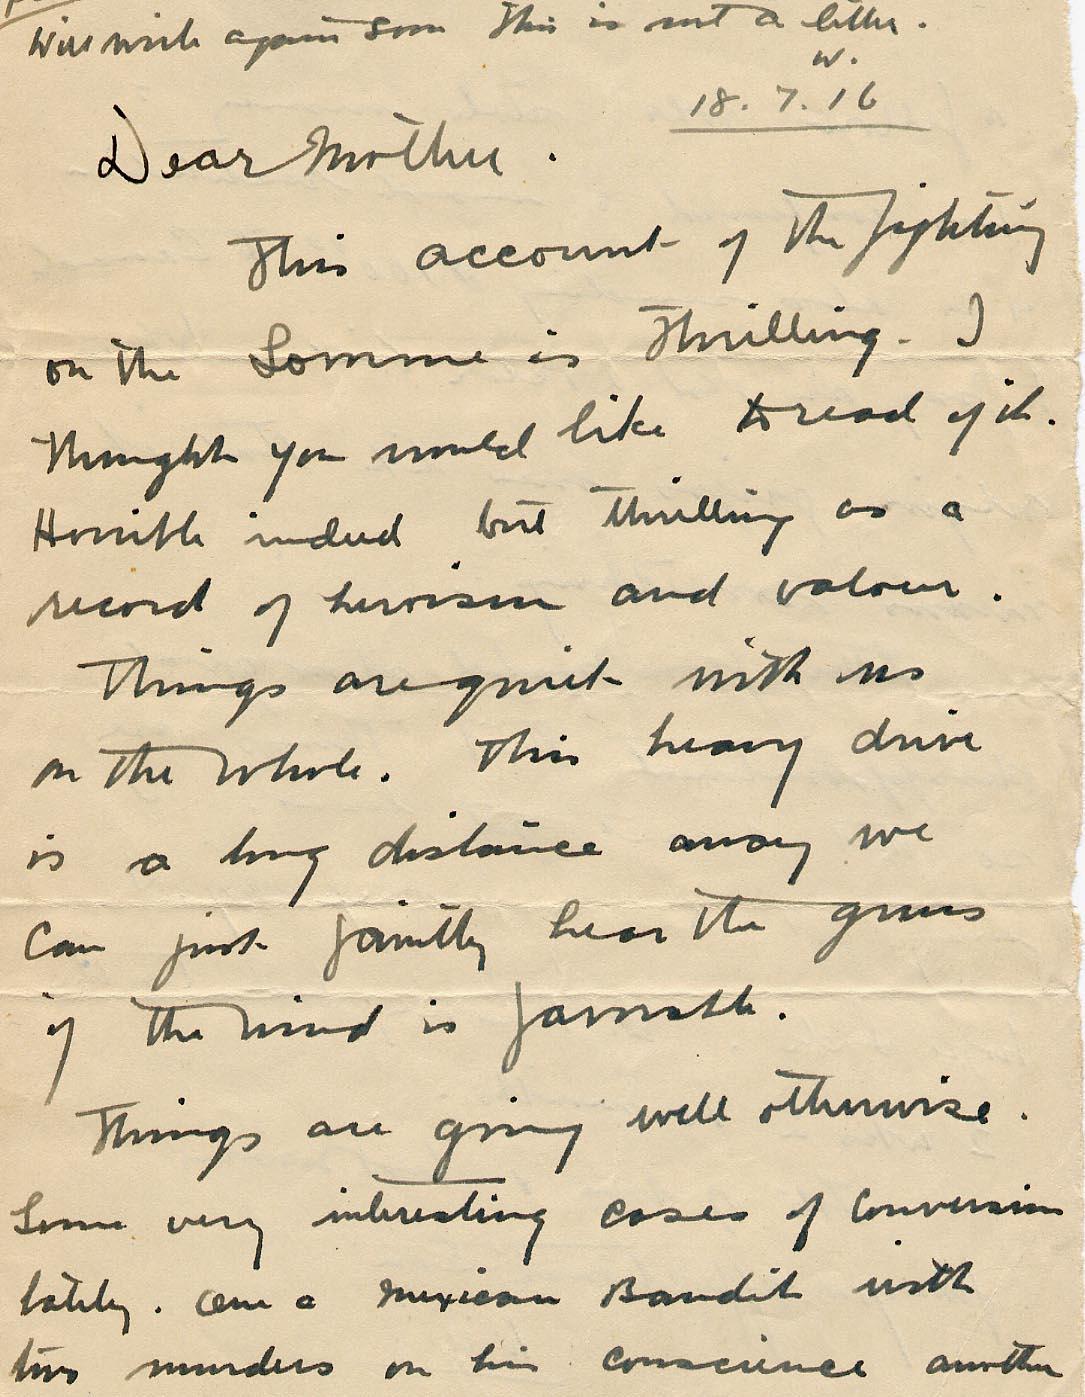 Will write again soon This is not a letter.
W.
18.7.16
Dear Mother.
This account of the fighting
on the Somme is thrilling. I
thought you would like to read of it.
Horrible indeed but thrilling as a
record of heroism and valour.
Things are quiet with us
on the whole. This heavy drive
is a long distance away we
can just faintly hear the guns
if the wind is favorable.
Things are going well otherwise.
Some very interesting cases of conversion
lately. One a Mexican Bandit with
two murders on his conscience another